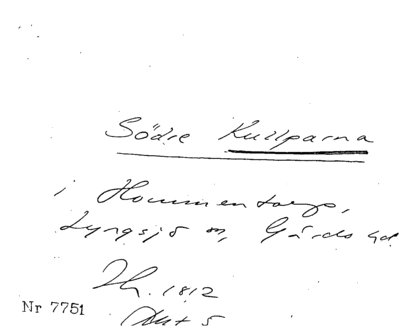 Södre Kullparna
i Hommentorp,
Lyngsjö sn, Gärds hd.
Th. 1812
Akt 5
Nr 7751